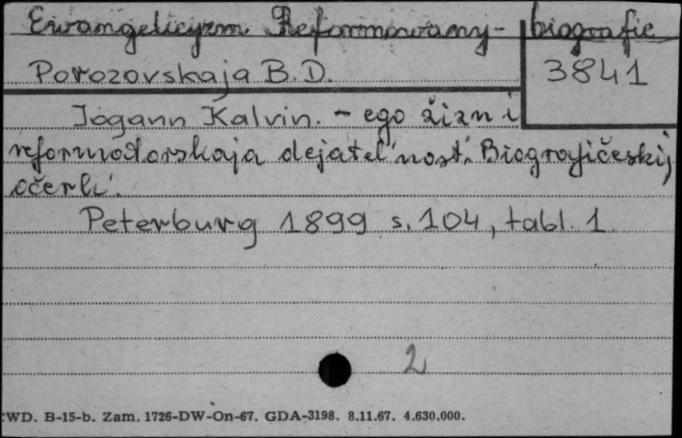 Ewangelicyzm Reformowany - biografie
Porozovskaja B.D. 3841
Iogann Kalvin. - ego žizn i
reformatorskaja dejatel'nost'. Biografičeskij
očerk.
Peterburg 1899 s. 104, tabl. 1.
2
WD. B-15-b. Zam. 1726-DW-On-67. GDA-3198. 8.11.67. 4.630.000.